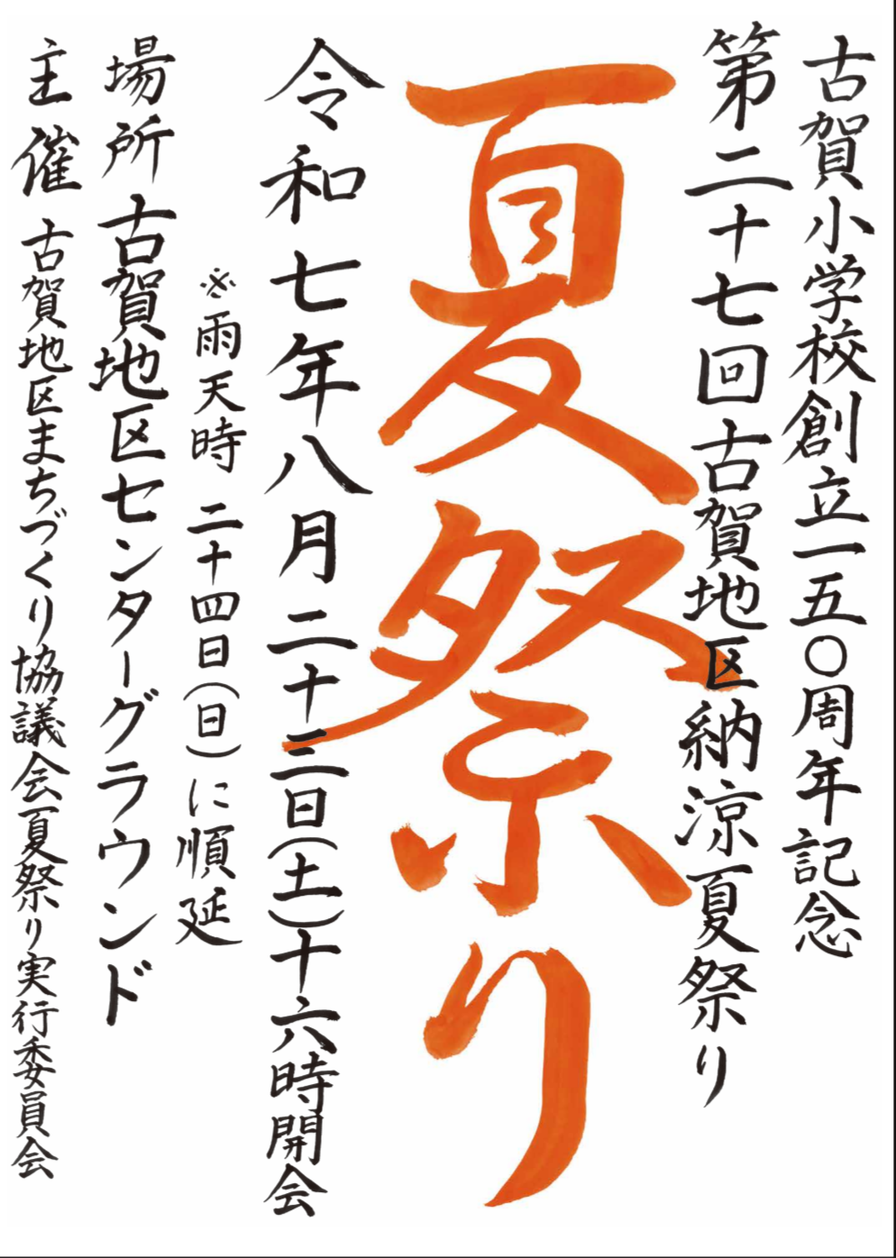 古賀小学校創立一五〇周年記念
第二十七回古賀地区納涼夏祭り
夏祭り
令和七年八月二十三日(土)十六時開会
※雨天時 二十四日(日)に順延
場所 古賀地区センターグラウンド
主催 古賀地区まちづくり協議会夏祭り実行委員会